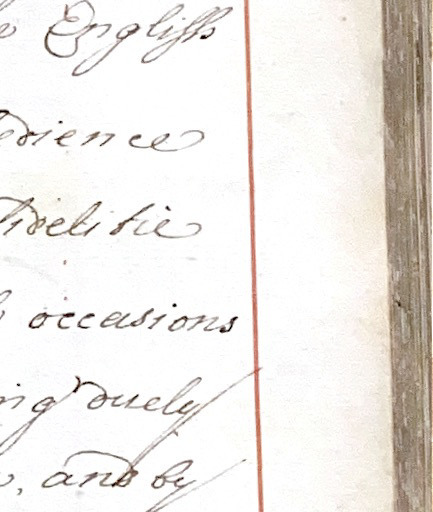 English
edience
Fidelitie
occasions
ing duely
, and by